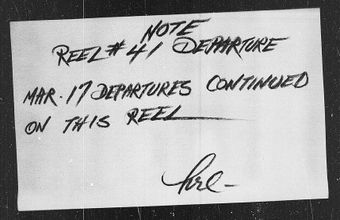 NOTE
REEL # 41 DEPARTURE
MAR. 17 DEPARTURES CONTINUED
ON THIS REEL